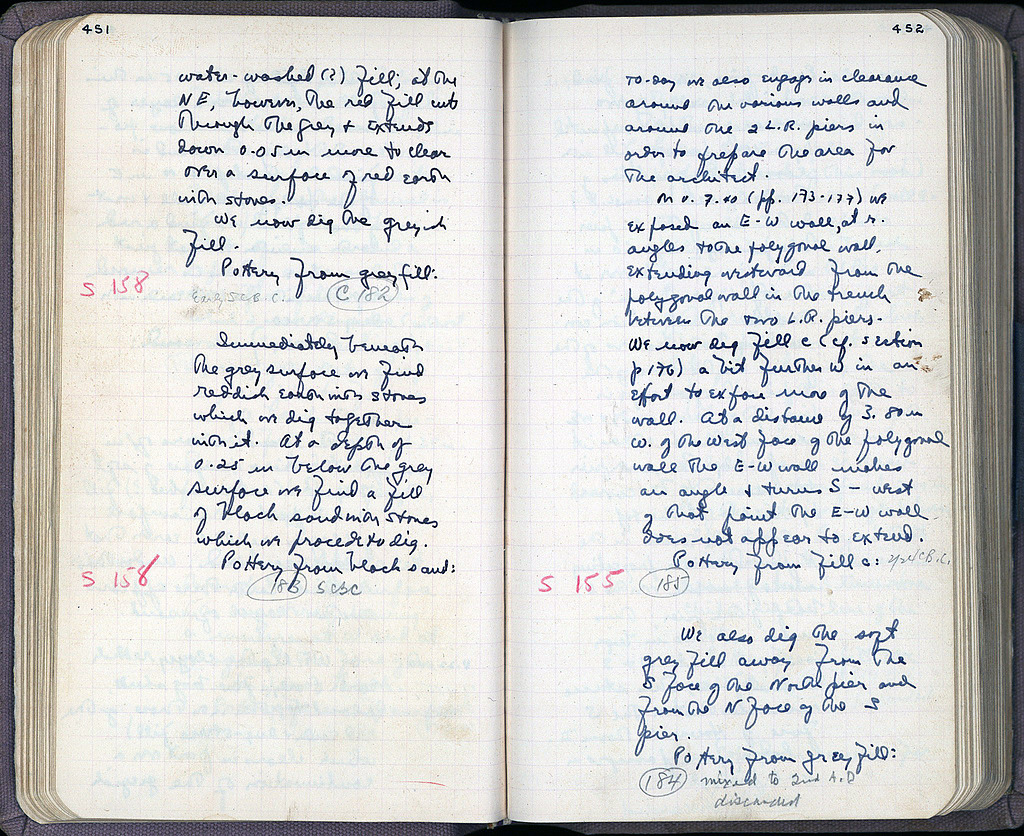 451
water-washed (?) fill; at the
N E, however, the red fill cuts
through the grey & extends
down 0.05 m more to clear
over a surface of red earth
with stones.
We now dig the greyish
fill.
Pottery from grey fill:
S 158
C 182
Immediately beneath
the grey surface we find
reddish earth with stones
which we dig together
with it. At a depth of
0.25 m below the grey
surface we find a fill
of black sand with stones
which we procede to dig.
Pottery from black sand:
S 158
183 5 c BC
452
To-day we also engage in clearance
around the various walls and
around the 2 L.R. piers in
order to prepare the area for
the architect.
On v. 7. 40 (pp. 173-177) we
exposed an E-W wall, at r.
angles to the polygonal wall,
extending westward from the
polygonal wall in the trench
between the two L.R. piers.
We now dig fill c (cf. section
p 176) a bit further W in an
effort to expose more of the
wall. At a distance of 3.80 m
W. of the west face of the polygonal
wall the E-W wall makes
an angle & turns S - west
of that point the E-W wall
does not appear to extend.
Pottery from fill c: B.C.
S 155
185
We also dig the soft
grey fill away from the
S face of the North pier and
from the N face of the S
pier.
Pottery from grey fill:
184 mixed to 2nd A.D
discarded